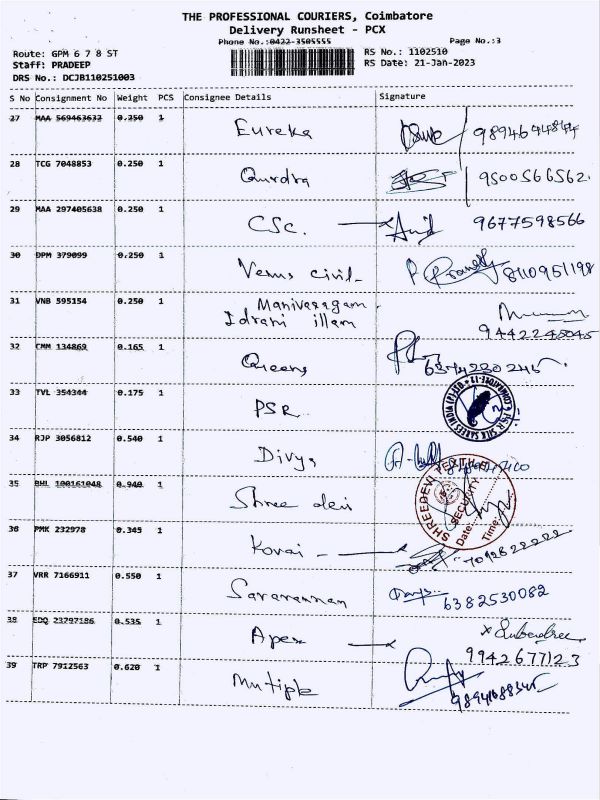 THE PROFESSIONAL COURIERS, Coimbatore
Delivery Runsheet - PCX
Phone No.:0422-3505555 Page No.:3
Route: GPM 6 7 8 ST RS No.: 1102510
Staff: PRADEEP RS Date: 21-Jan-2023
DRS No.: DCJB110251003
S No Consignment No Weight PCS Consignee Details Signature
27 MAA 569463632 0.250 1 Eureka
28 TCG 7048853 0.250 1 9500566562
29 MAA 297405638 0.250 1 CSC. 9677598566
30 DPM 379099 0.250 1 Venus civil 8110951198
31 VNB 595154 0.250 1 Manivasagam
Idrani illam
9442245045
32 CMM 134869 0.165 1 Queens 6374220245
33 TVL 354344 0.175 1 PSR
34 RJP 3056812 0.540 1 Divya
35 BHL 100161048 0.940 1 Shree devi
SECURITY
Date: Time:
36 PMK 232978 0.345 1 Kovai
37 VRR 7166911 0.550 1 Saravannan 6382530082
38 EDQ 23297186 0.535 1 Apex
9942677123
39 TRP 7912563 0.620 1 Mutiple